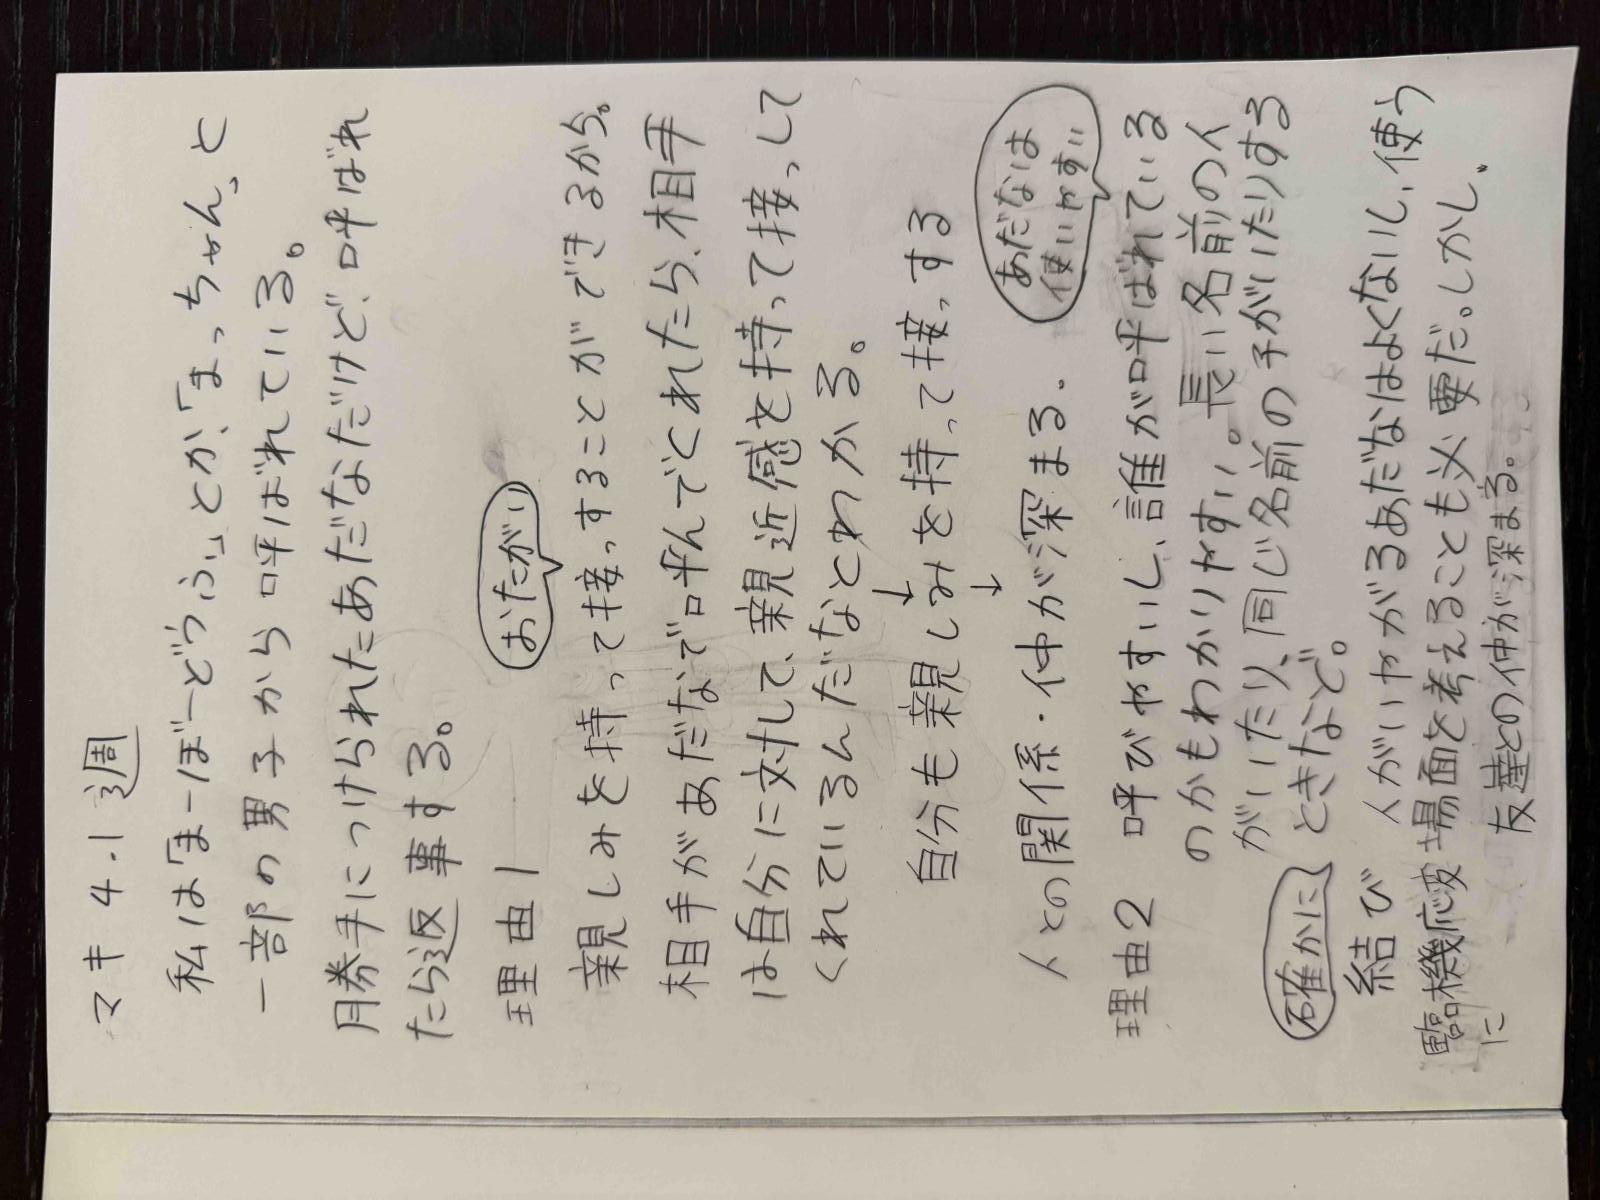 マキ 4.1週
私は「まーぼーどうふ」とか、「まっちゃん」と
一部の男子から呼ばれている。
勝手につけられたあだなだけど、呼ばれ
たら返事する。
理由1
おたがい
親しみを持って接っすることができるから。
相手があだなで呼んでくれたら、相手
は自分に対して、親近感を持って接っして
くれているんだなとわかる。
↓
自分も親しみを持って接っする
↓
人との関係・仲が深まる.
あだなは
使いやすい
理由2 呼びやすいし、誰が呼ばれている
のかもわかりやすい。長い名前の人
がいたり、同じ名前の子がいたりする
ときなど。
確かに
結び 人がいやがるあだなはよくないし、使う
臨機応変場面を考えることも必要だ。しかし、
に
友達との仲が深まる。